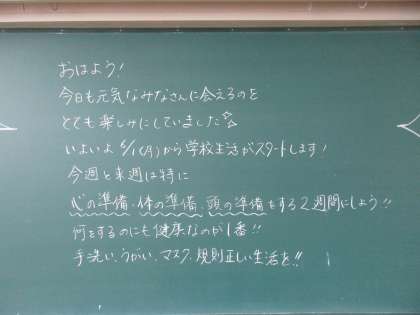 おはよう!
今日も元気なみなさんに会えるのを
とても楽しみにしていました☆
いよいよ6/1(月)から学校生活がスタートします!
今週と来週は特に
心の準備、体の準備、頭の準備をする2週間にしよう!!
何をするのにも健康なのが1番!!
手洗い、うがい、マスク、規則正しい生活を!!